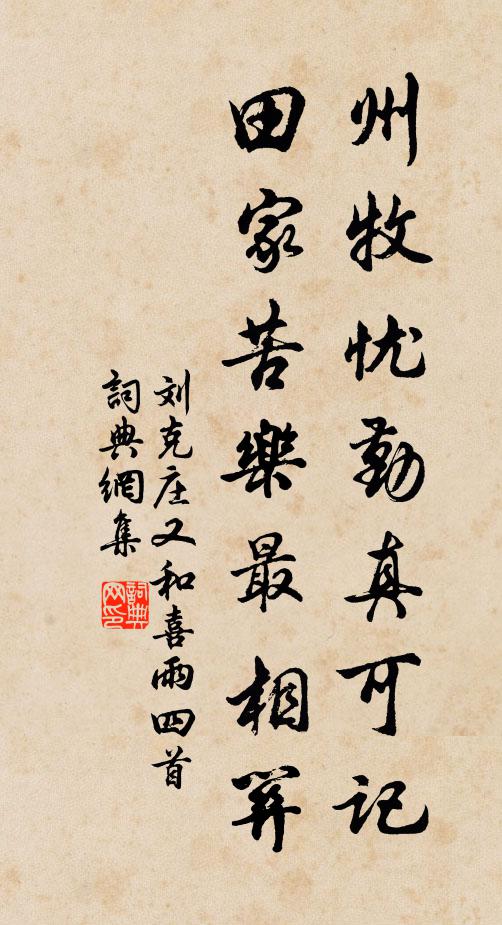 州牧忧勤真可记
田家苦樂最相關
刘克庄又和喜雨四首
詞典網集
詞典
网印